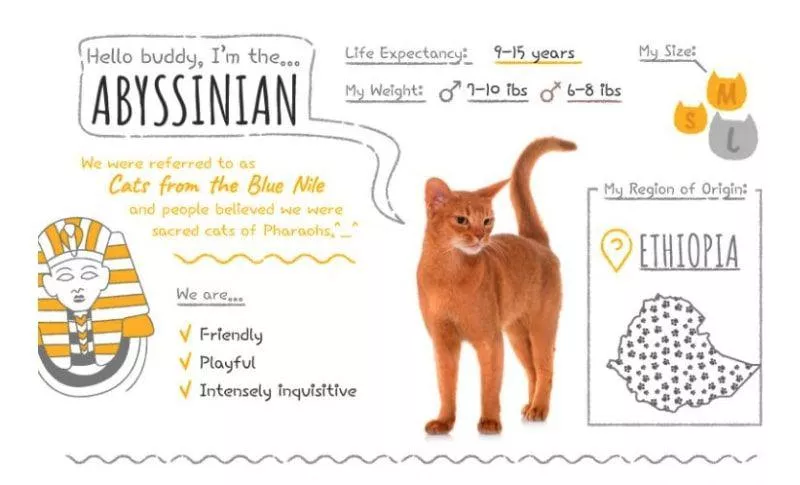 Hello buddy, I'm the...
ABYSSINIAN
Life Expectancy: 9-15 years
My Weight: ♂ 7-10 ibs ♂ 6-8 ibs
My Size:
S M L
We were referred to as
Cats from the Blue Nile
and people believed we were
sacred cats of Pharaohs.^_^
We are...
✓ Friendly
✓ Playful
✓ Intensely inquisitive
My Region of Origin:
ETHIOPIA